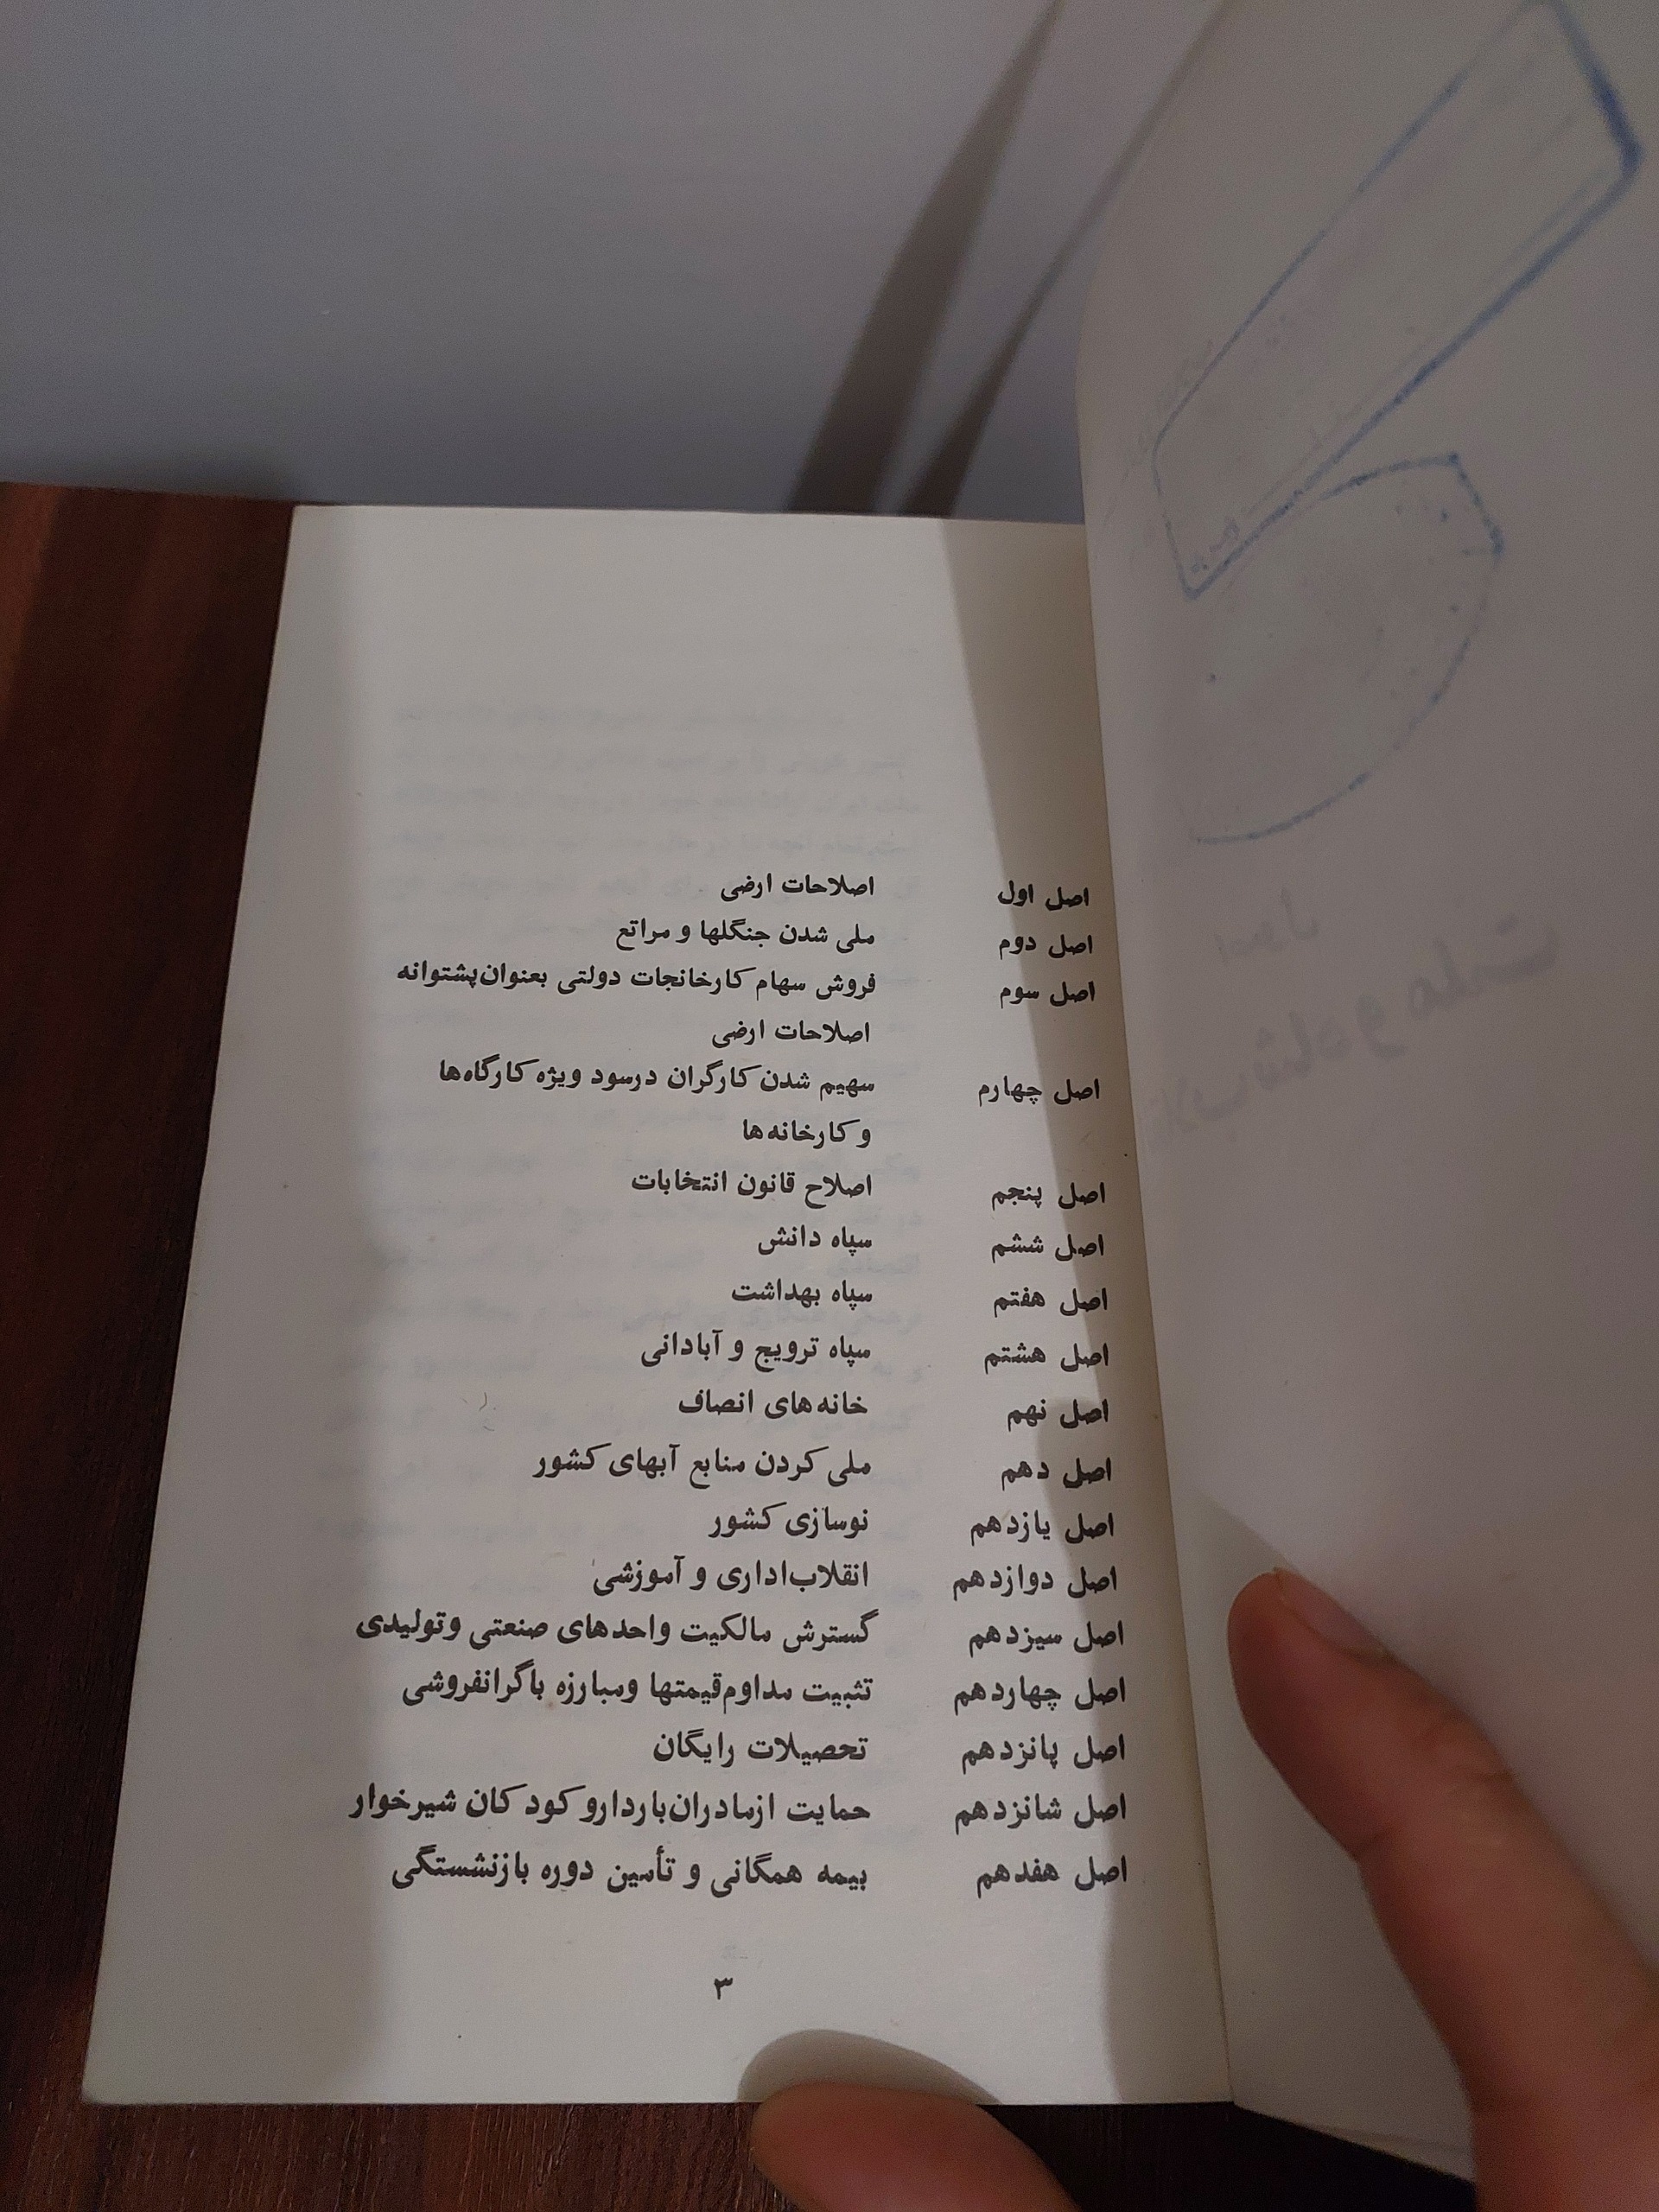 اصل اول اصلاحات ارضی
اصل دوم ملی شدن جنگلها و مراتع
اصل سوم فروش سهام کارخانجات دولتی بعنوان پشتوانه
اصلاحات ارضی
اصل چهارم سهیم شدن کارگران درسود ویژه کارگاه‌ها
و کارخانه‌ها
اصل پنجم اصلاح قانون انتخابات
اصل ششم سپاه دانش
اصل هفتم سپاه بهداشت
اصل هشتم سپاه ترویج و آبادانی
اصل نهم خانه‌های انصاف
اصل دهم ملی کردن منابع آبهای کشور
اصل یازدهم نوسازی کشور
اصل دوازدهم انقلاب اداری و آموزشی
اصل سیزدهم گسترش مالکیت واحدهای صنعتی وتولیدی
اصل چهاردهم تثبیت مداوم قیمتها ومبارزه باگرانفروشی
اصل پانزدهم تحصیلات رایگان
اصل شانزدهم حمایت ازمادران باردارو کودکان شیرخوار
اصل هفدهم بیمه همگانی و تأمین دوره بازنشستگی
۳